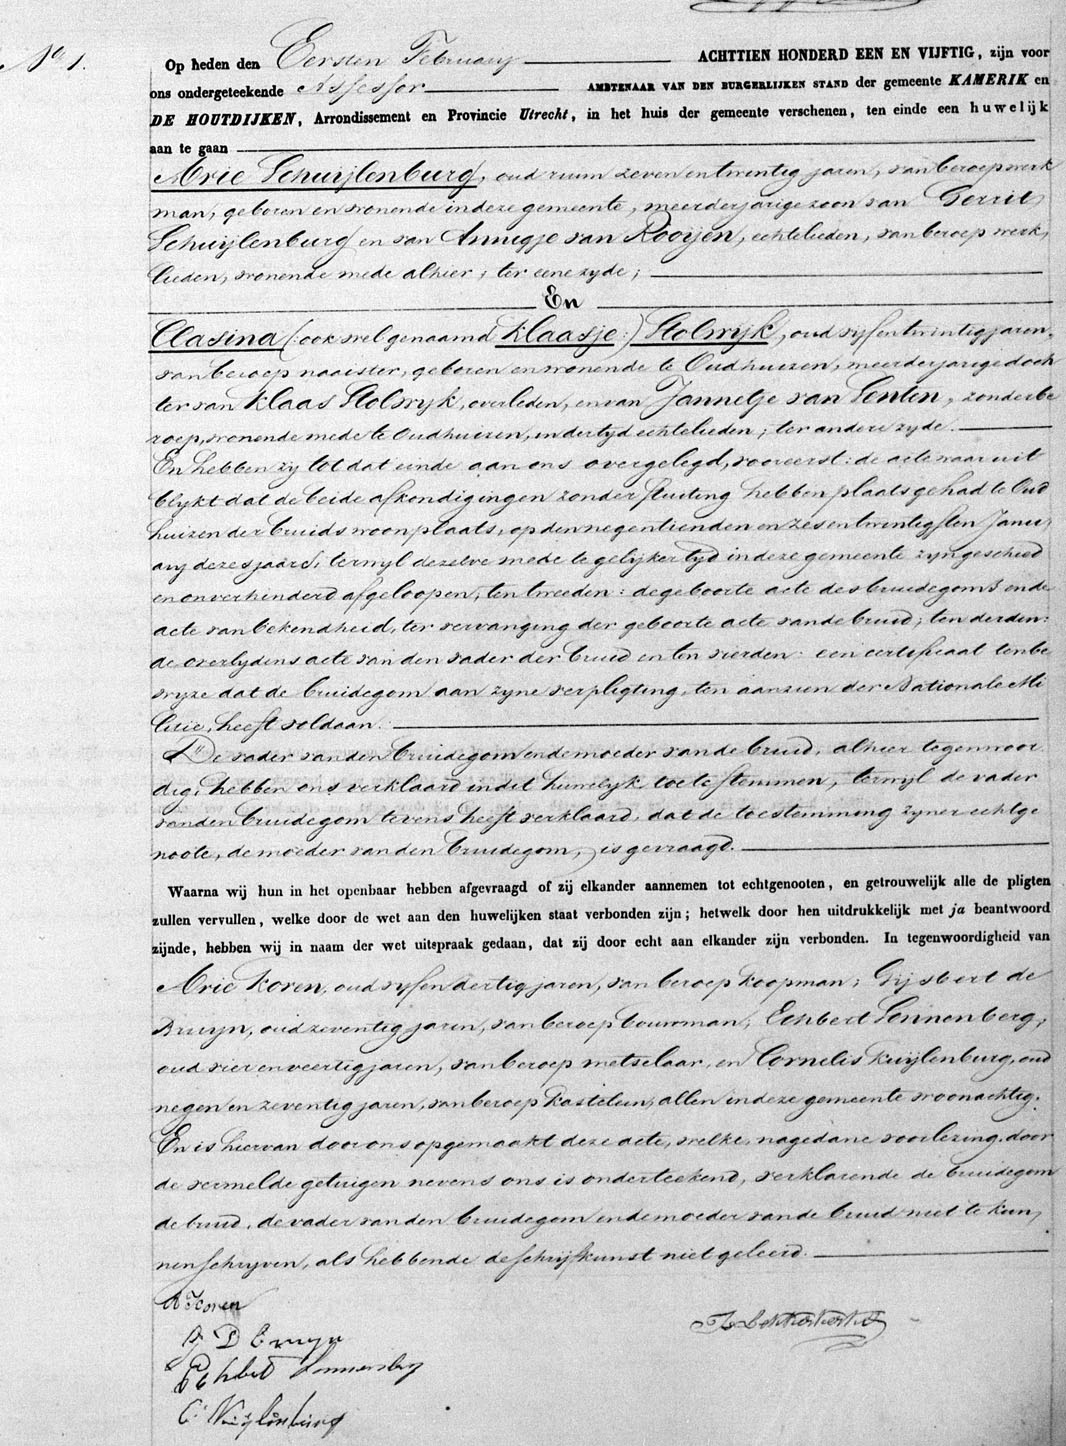 No 1.
Op heden den Eersten February ACHTTIEN HONDERD EEN EN VIJFTIG, zijn voor
ons ondergeteekende Assessor AMBTENAAR VAN DEN BURGERLIJKEN STAND der gemeente KAMERIK en
DE HOUTDIJKEN, Arrondissement en Provincie Utrecht, in het huis der gemeente verschenen, ten einde een huwelijk
aan te gaan
Arie Schuijlenburg, oud ruim zeven en twintig jaren, van beroep werk
man, geboren en wonende in deze gemeente, meerderjarige zoon van Gerrit
Schuijlenburg en van Annigje van Rooijen, echtelieden, van beroep werk,
lieden, wonende mede alhier; ter eene zyde;
En
Clasina (: ook wel genaamd Klaasje :) Stolwyk, oud vyf en twintig jaren,
van beroep naaister, geboren en wonende te Oudhuizen, meerderjarige doch
ter van Klaas Stolwyk, overleden, en van Jannetje van Senten, zonder be
roep, wonende mede te Oudhuizen, in der tyd echtelieden; ter andere zyde.
En hebben zy tot dat einde aan ons overgelegd, vooreerst: de acte waar uit
blykt dat de beide afkondigingen zonder stuiting hebben plaats gehad te Oud
huizen der bruids woonplaats, op den negentienden en zes en twintigsten Janu,
ary dezes jaars, terwyl dezelve mede te gelyker tyd in deze gemeente zyn geschied
en onverhinderd afgeloopen, ten tweeden: de geboorte acte des bruidegoms en de
acte van bekendheid, ter vervanging der geboorte acte van de bruid; ten derden:
de overlydens acte van den vader der bruid en ten vierden: een certificaat ten be
wyze dat de bruidegom aan zyne verpligting, ten aanzien der Nationale Mi
litie, heeft voldaan.
De vader van den bruidegom en de moeder van de bruid, alhier tegenwoor
dig, hebben ons verklaard in dit huwelyk toetestemmen, terwyl de vader
van den bruidegom tevens heeft verklaard, dat de toestemming zyner echtge
noote, de moeder van den bruidegom, is gevraagd.
Waarna wij hun in het openbaar hebben afgevraagd of zij elkander aannemen tot echtgenooten, en getrouwelijk alle de pligten
zullen vervullen, welke door de wet aan den huwelijken staat verbonden zijn; hetwelk door hen uitdrukkelijk met ja beantwoord
zijnde, hebben wij in naam der wet uitspraak gedaan, dat zij door echt aan elkander zijn verbonden. In tegenwoordigheid van
Arie Koren, oud vyf en dertig jaren, van beroep koopman; Gijsbert de
Bruyn, oud zeventig jaren, van beroep bouwman; Echbert Sonnenberg,
oud vier en veertig jaren, van beroep metselaar, en Cornelis Kuijlenburg, oud
negen en zeventig jaren, van beroep kastelein, allen in deze gemeente woonachtig.
En is hiervan door ons opgemaakt deze acte, welke, na gedane voorlezing, door
de vermelde getuigen nevens ons is onderteekend, verklarende de bruidegom
de bruid, de vader van den bruidegom en de moeder van de bruid niet te kun,
nen schryven, als hebbende de schryfkunst niet geleerd.
A Koren
G D Bruyn
Echbert Sonnenberg
C. Kuijlenburg